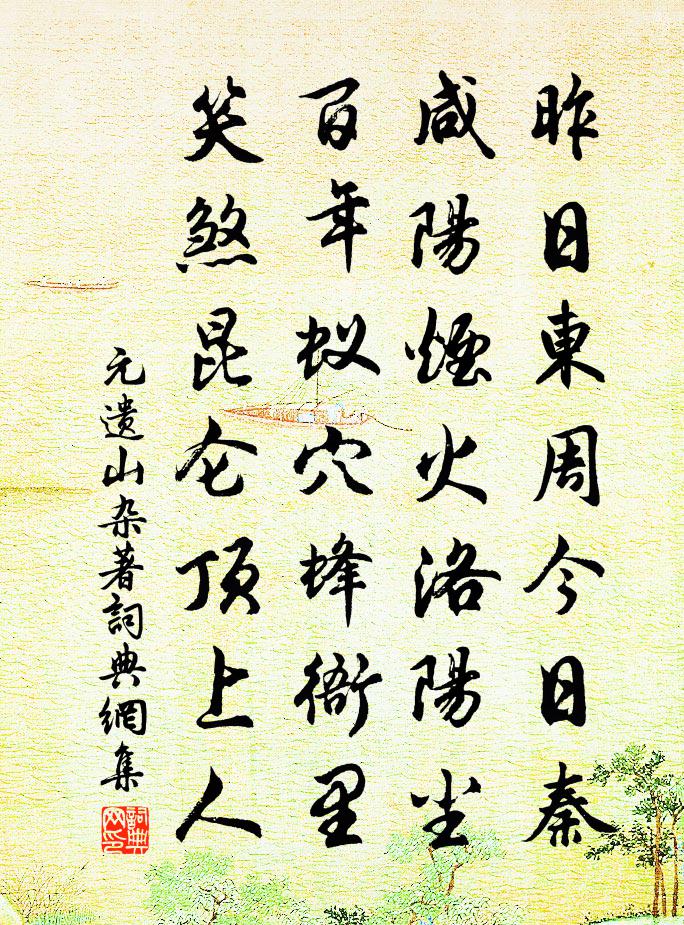 昨日東周今日秦
咸陽煙火洛陽尘
百年蚁穴蜂衙里
笑煞昆仑頂上人
元遺山杂著詞典網集
詞典
网印